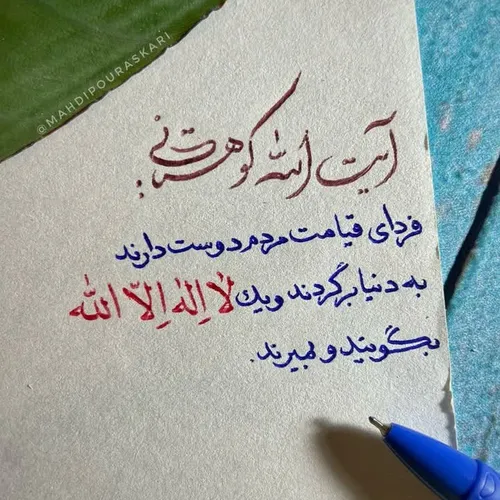 @MAHDIPOURASKARI
آیت الله کوهستانی:
فردای قیامت مردم دوست دارند
به دنیا برگردند و یک لا اله الا الله
بگویند و بمیرند.